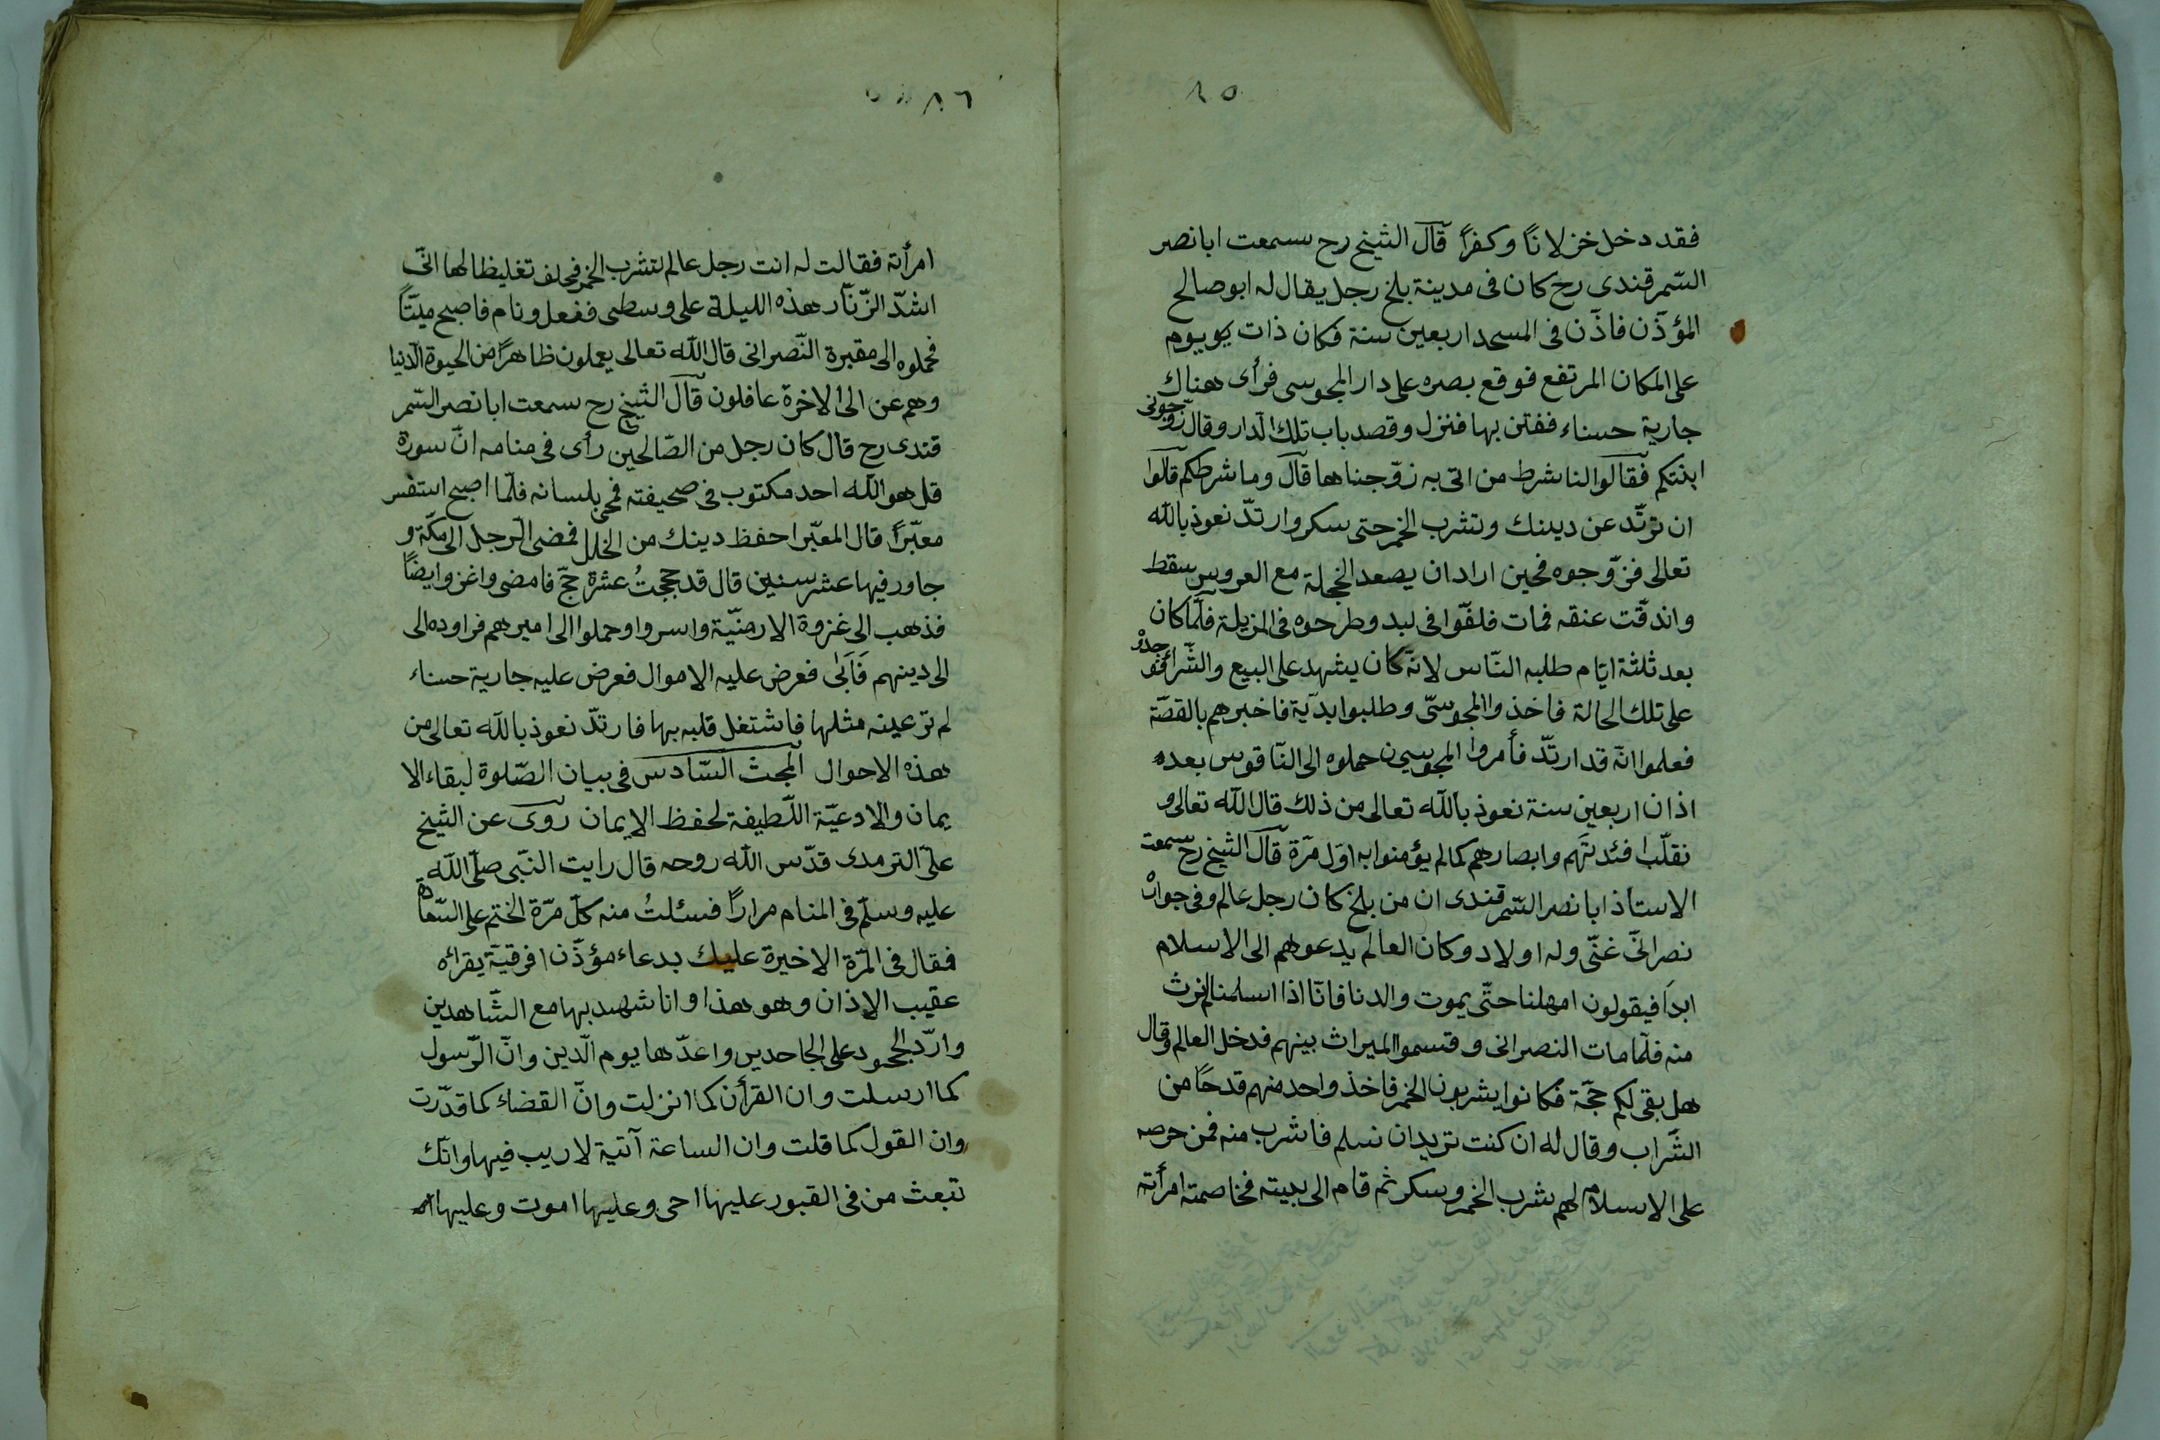 ٨٥
فقد دخل خزلانًا وكفرًا قال الشيخ رح سمعت ابا نصر
السّمرقندى رح كان فى مدينة بلخ رجل يقال له ابو صالح
المؤذّن فاذّن فى المسجد اربعين سنة فكان ذات يو يوم
على المكان المرتفع فوقع بصره على دار المجوسى فرأى هناك
جارية حسناء ففتن بها فنزل وقصد باب تلك الدار وقال زوّجونى
ابنتكم فقالوا لنا شرط من اتى به زوّجناها قال وما شرطكم قالوا
ان ترتّد عن دينك وتشرب الخمر حتى سكر وارتدّ نعوذ بالله
تعالى فزوّجوه فحين اراد ان يصعد الحجلة مع العروس سقط
واندقّت عنقه فمات فلفّوا فى لبد وطرحوه فى المزبلة فلمّا كان
بعد ثلثة ايّام طلبه النّاس لانّه كان يشهد على البيع والشّراء فوجدوْ
على تلك الحالة فاخذوا المجوسىّ وطلبوا بديّة فاخبرهم بالقصّة
فعلموا انّه قد ارتدّ فأمروا المجوسين حملوه الى النّاقوس بعده
اذان اربعين سنة نعوذ بالله تعالى من ذلك قال الله تعالى و
نقلّب افئدتَهم وابصارهم كما لم يؤمنوا به اوّل مرّة قال الشيخ رح سمعت
الاستاذ ابا نصر السّمرقندى ان من بلخ كان رجل عالم وفى جواره
نصرانىّ غنّى وله اولاد وكان العالم يدعوهم الى الاسلام
ابدًا فيقولون امهلنا حتّى يموت والدنا فانّا اذا اسلمنا لم نرث
منه فلمّا مات النصرانى وقتسموا الميراث بينهم فدخل العالم وقال
هل بقى لكم حجّة فكانوا يشربون الخمر فاخذ واحد منهم قدحًا من
الشّراب وقال له ان كنت تريد ان نسلم فاشرب منه فمن حرصه
على الاسلام لهم شرب الخمر وسكر ثم قام الى بيته فخاصمته امرأته
٨٦
امرأته فقالت له انت رجل عالم لتشرب الخمر فحلف تغليظا لها انّى
اشدّ الزّنّار هذه الليلة على وسطى ففعل ونام فاصبح ميّتًا
فحملوه الى مقبرة النّصرانى قال الله تعالى يعملون ظاهرًا من الحيوة الدّنيا
وهم عن الى الاخرة غافلون قال الشيخ رح سمعت ابا نصر السّمر
قندى رح قال كان رجل من الصّالحين رأى فى منامه انّ سورة
قل هو الله احد مكتوب فى صحيفته فمحى بلسانه فلمّا اصبح استفسر
معبّرًا قال المعبّر احفظ دينك من الخلل فمضى الرّجل الى مكّة و
جاور فيها عشر سنين قال قد حججتُ عشرة حجّ فامضى واغز وايضًا
فذهب الى غزوة الارمنيّة واسروا وحملوا الى اميرهم فراوده الى
الى دينهم فَاَبَى فعرض عليه الاموال فعرض عليه جارية حسناء
لم تر عينه مثلها فاشتغل قلبه بها فارتدّ نعوذ بالله تعالى من
هذه الاحوال المبحث السّادس فى بيان الصّلوة لبقاء الا
يمان والادعيّة اللّطيفة لحفظ الايمان روى عن الشيخ
علىّ الترمدى قدّس الله روحه قال رايت النّبى صلّى الله
عليه وسلّم فى المنام مرارًا فسئلتُ منه كلّ مرّة الختم على السّعادة
فقال فى المرّة الاخيرة عليك بدعاء مؤذّن افرقيّة يقرائه
عقيب الاذان وهو هذا وانا شهد بها مع الشّاهدين
واردّ الجحود على الجاحدين واعدّها يوم الدّين وانّ الرّسول
كما ارسلت وان القرأن كما انزلت وانّ القضاء كما قدّرت
وان القول كما قلت وان الساعة آتية لا ريب فيها وانّك
تبعث من فى القبور عليها احى وعليها اموت وعليها